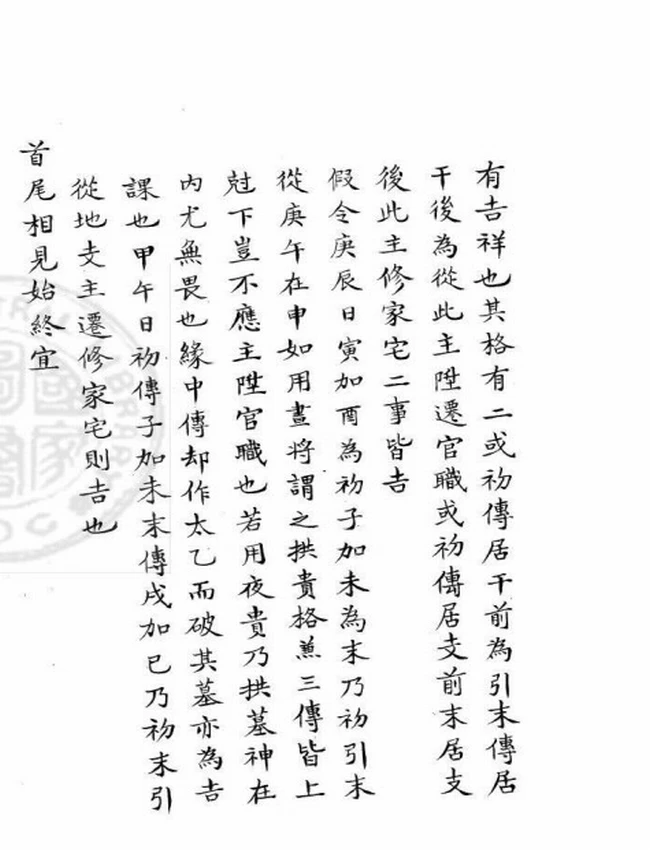 有吉祥也其格有二或初傳居干前為引末傳居
干後為從此主陞遷官職或初傳居支前末居支
後此主修家宅二事皆吉
假令庚辰日寅加酉為初子加未為末乃初引末
從庚午在申如用晝將謂之拱貴格兼三傳皆上
尅下豈不應主陞官職也若用夜貴乃拱墓神在
內尤無畏也緣中傳却作太乙而破其墓亦為吉
課也甲午日初傳子加未末傳戌加巳乃初末引
從地支主遷修家宅則吉也
首尾相見始終宜